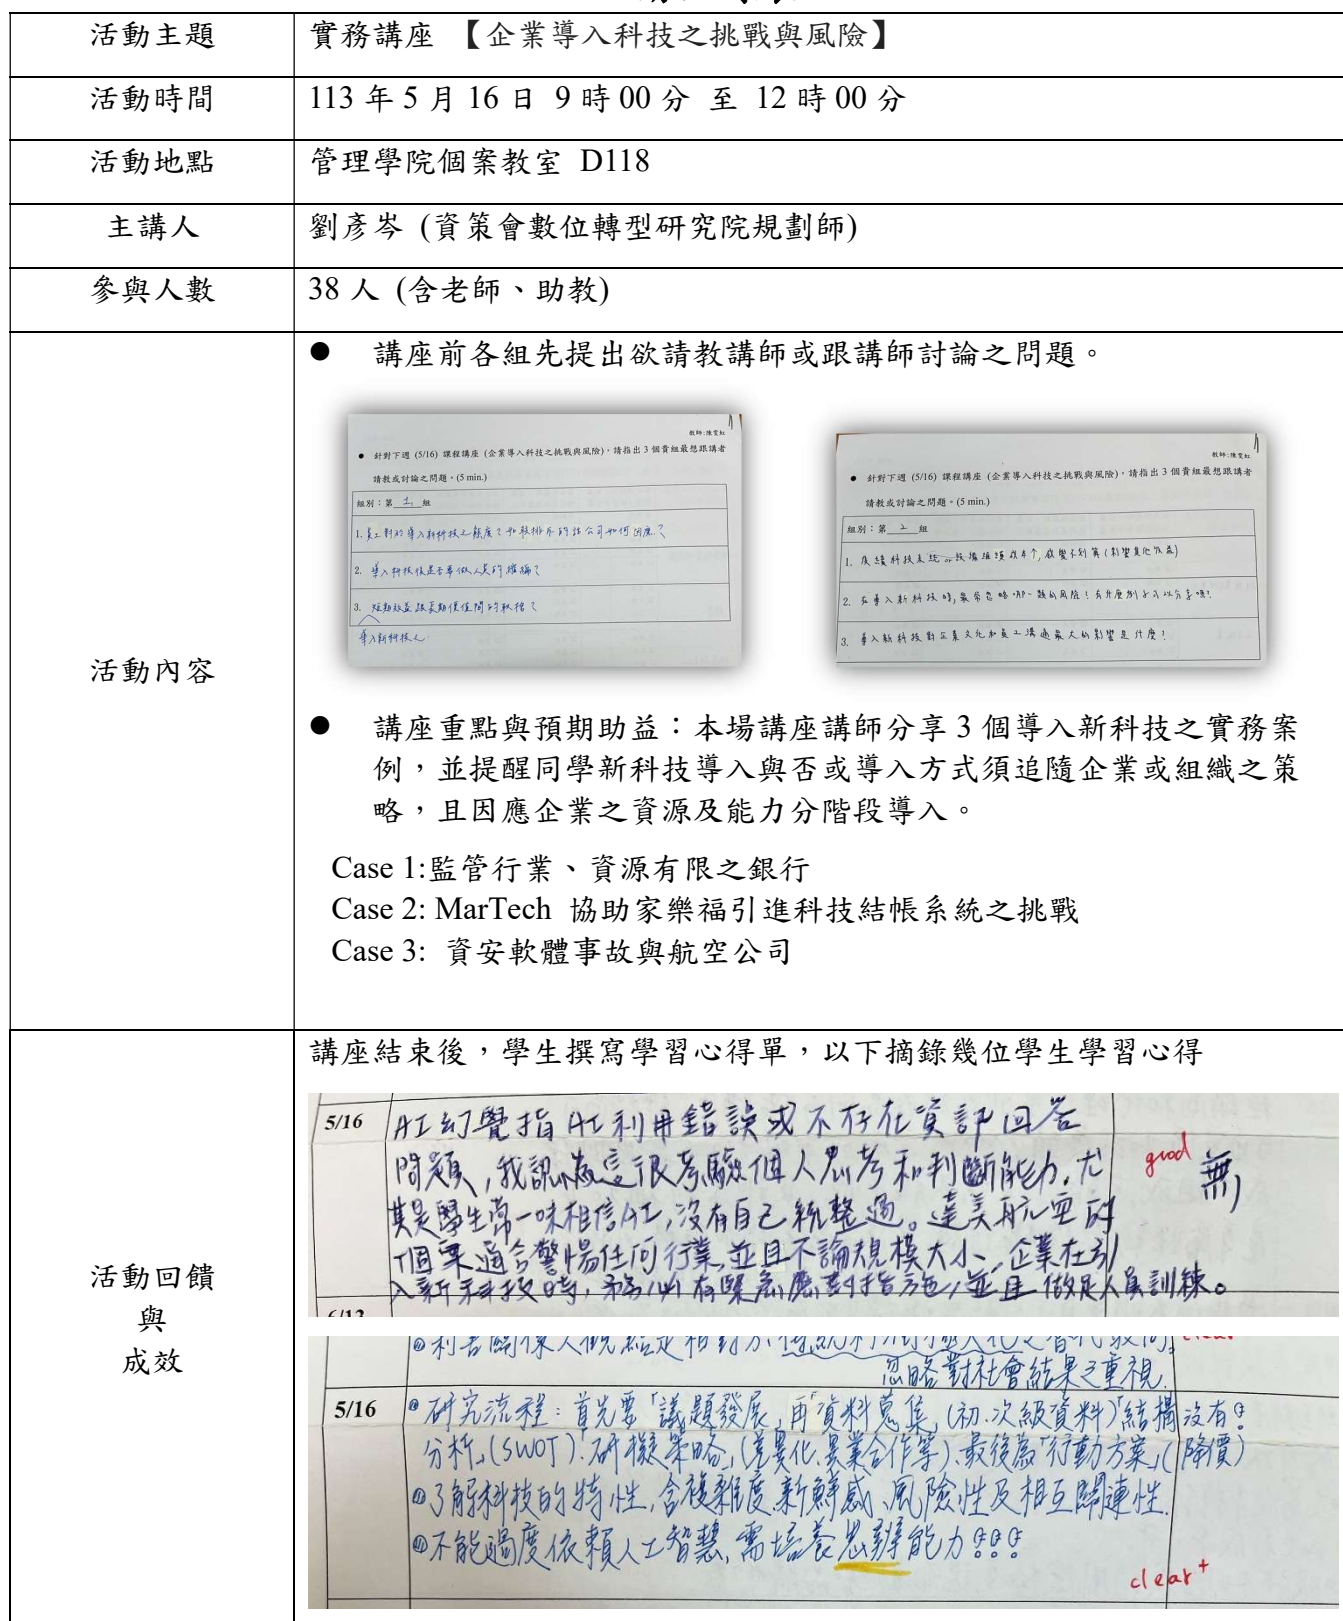 活動主題
實務講座 【企業導入科技之挑戰與風險】
活動時間
113 年 5 月 16 日 9 時 00 分 至 12 時 00 分
活動地點
管理學院個案教室 D118
主講人
劉彥岑 (資策會數位轉型研究院規劃師)
參與人數
38 人 (含老師、助教)
活動內容
● 講座前各組先提出欲請教講師或跟講師討論之問題。
● 針對下週 (5/16) 課程講座 (企業導入科技之挑戰與風險),請指出 3 個貴組最想跟講者
請教或討論之問題。(5 min.)
組別:第 1 組
1. 員工對於導入新科技之態度?如較排斥的話公司如何因應?
2. 導入科技後是否要做人員的縮編?
3. 短期效益跟長期價值間的取捨?
導入新科技之
● 針對下週 (5/16) 課程講座 (企業導入科技之挑戰與風險),請指出 3 個貴組最想跟講者
請教或討論之問題。(5 min.)
組別:第 2 組
1. 後續科技系統
2. 在導入新科技時,最常忽略哪一類的風險!有什麼例子可以分享嗎!
3. 導入新科技對企業文化和員工溝通最大的影響是什麼!
● 講座重點與預期助益:本場講座講師分享 3 個導入新科技之實務案
例,並提醒同學新科技導入與否或導入方式須追隨企業或組織之策
略,且因應企業之資源及能力分階段導入。
Case 1:監管行業、資源有限之銀行
Case 2: MarTech 協助家樂福引進科技結帳系統之挑戰
Case 3: 資安軟體事故與航空公司
活動回饋
與
成效
講座結束後,學生撰寫學習心得單,以下摘錄幾位學生學習心得
5/16 AI幻覺指AI利用錯誤或不存在資訊回答
問題,我認為這很考驗個人思考和判斷能力,尤 good 無
其是學生常一味相信AI,沒有自己統整過。達美航空的
個案適合警惕任何行業,並且不論規模大小,企業在引
入新科技時,務必有緊急應對措施,並且做足人員訓練。
忽略對社會結果之重視.
5/16 研究流程:首先要「議題發展」,再「資料蒐集」(初.次級資料)「結構 沒有
分析」(SWOT).「研擬策略」(差異化、異業合作等).最後為「行動方案」(降價)
了解科技的特性,含複雜度、新鮮感、風險性及相互關連性.
不能過度依賴人工智慧,需培養思辨能力
clear+